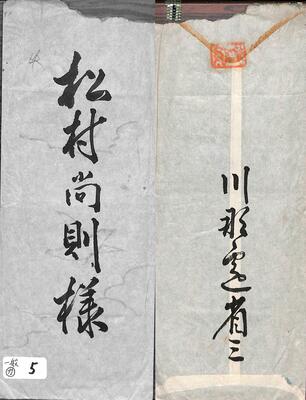 松村尚則様
川那邊省三
一般
5